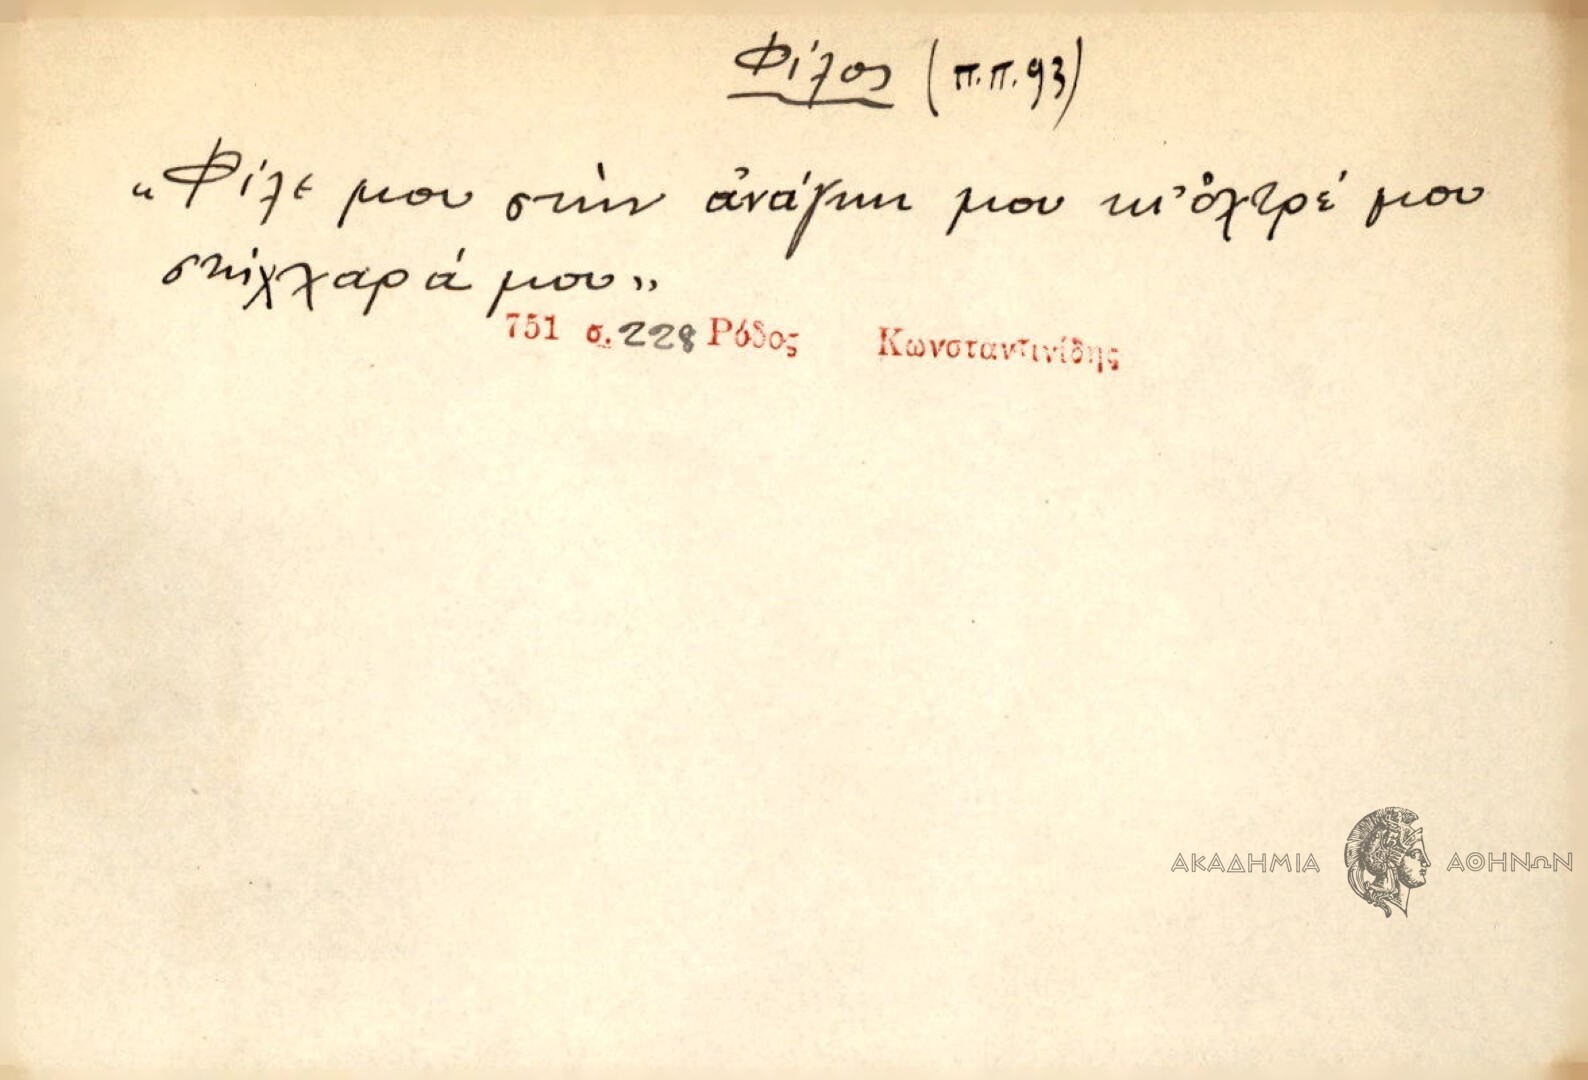 Φίλος (π.π.93)
“Φίλε μου στὴν ἀνάγκη μου κι' ὀχτρέ μου
στὴχ χαρά μου„
751 σ. 228 Ρόδος Κωνσταντινίδης
ΑΚΑΔΗΜΙΑ ΑΘΗΝΩΝ